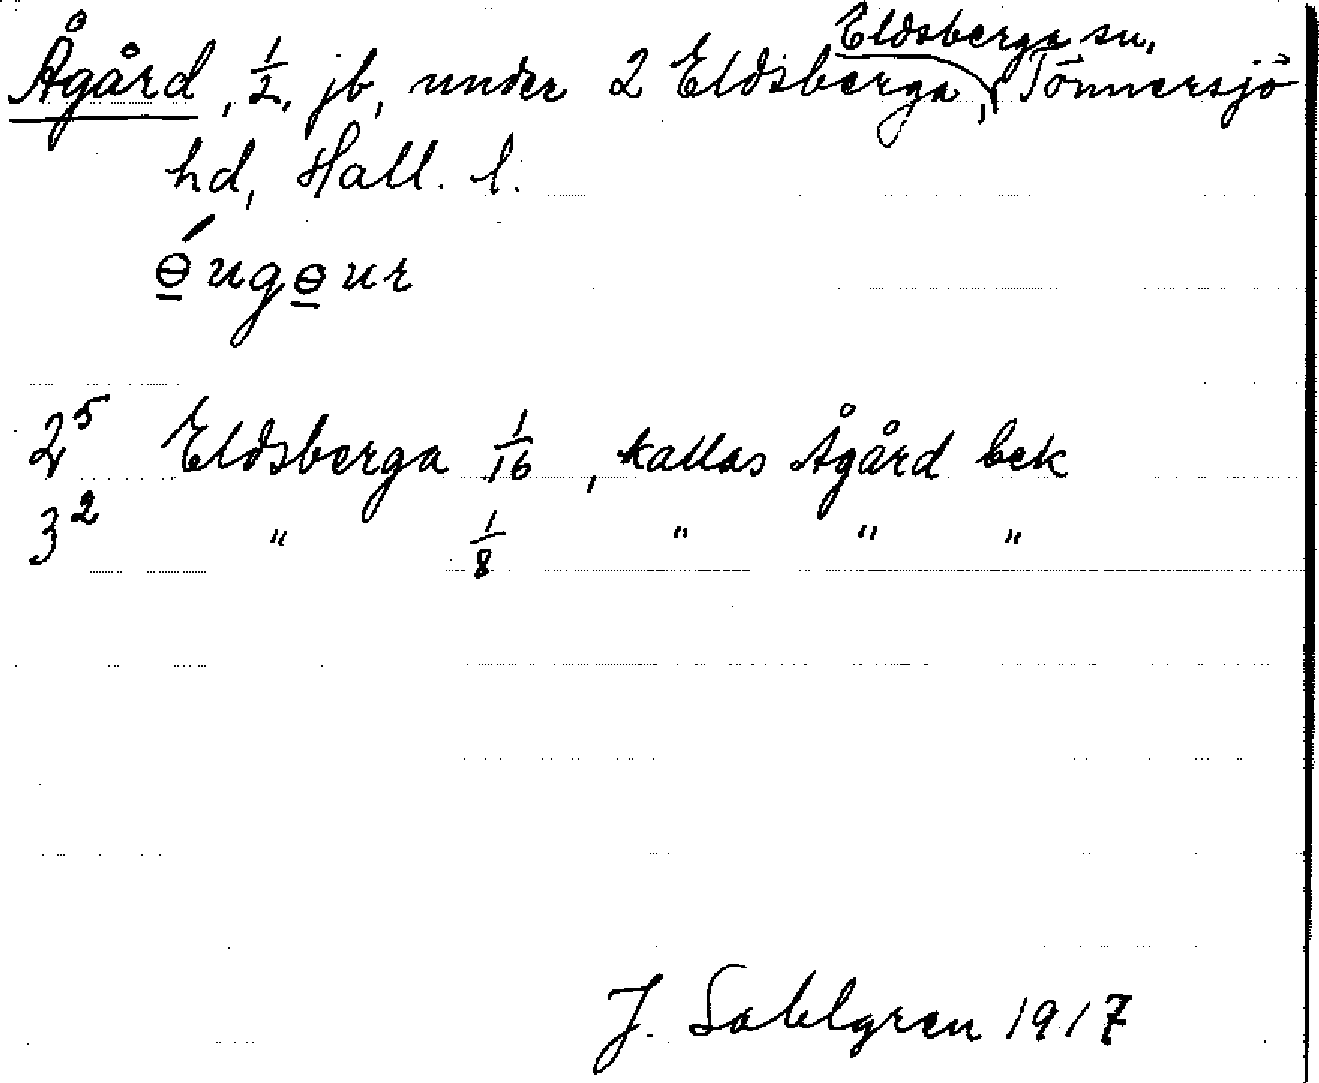 Ågård, 1/2, jb, under 2 Eldsberga, Eldsberga sn, Tönnersjö
hd, Hall. l.
ɵ̲́ugɵ̲ur
2⁵ Eldsberga 1/16, kallas Ågård bek
3² " 1/8 " " "
J. Sahlgren 1917